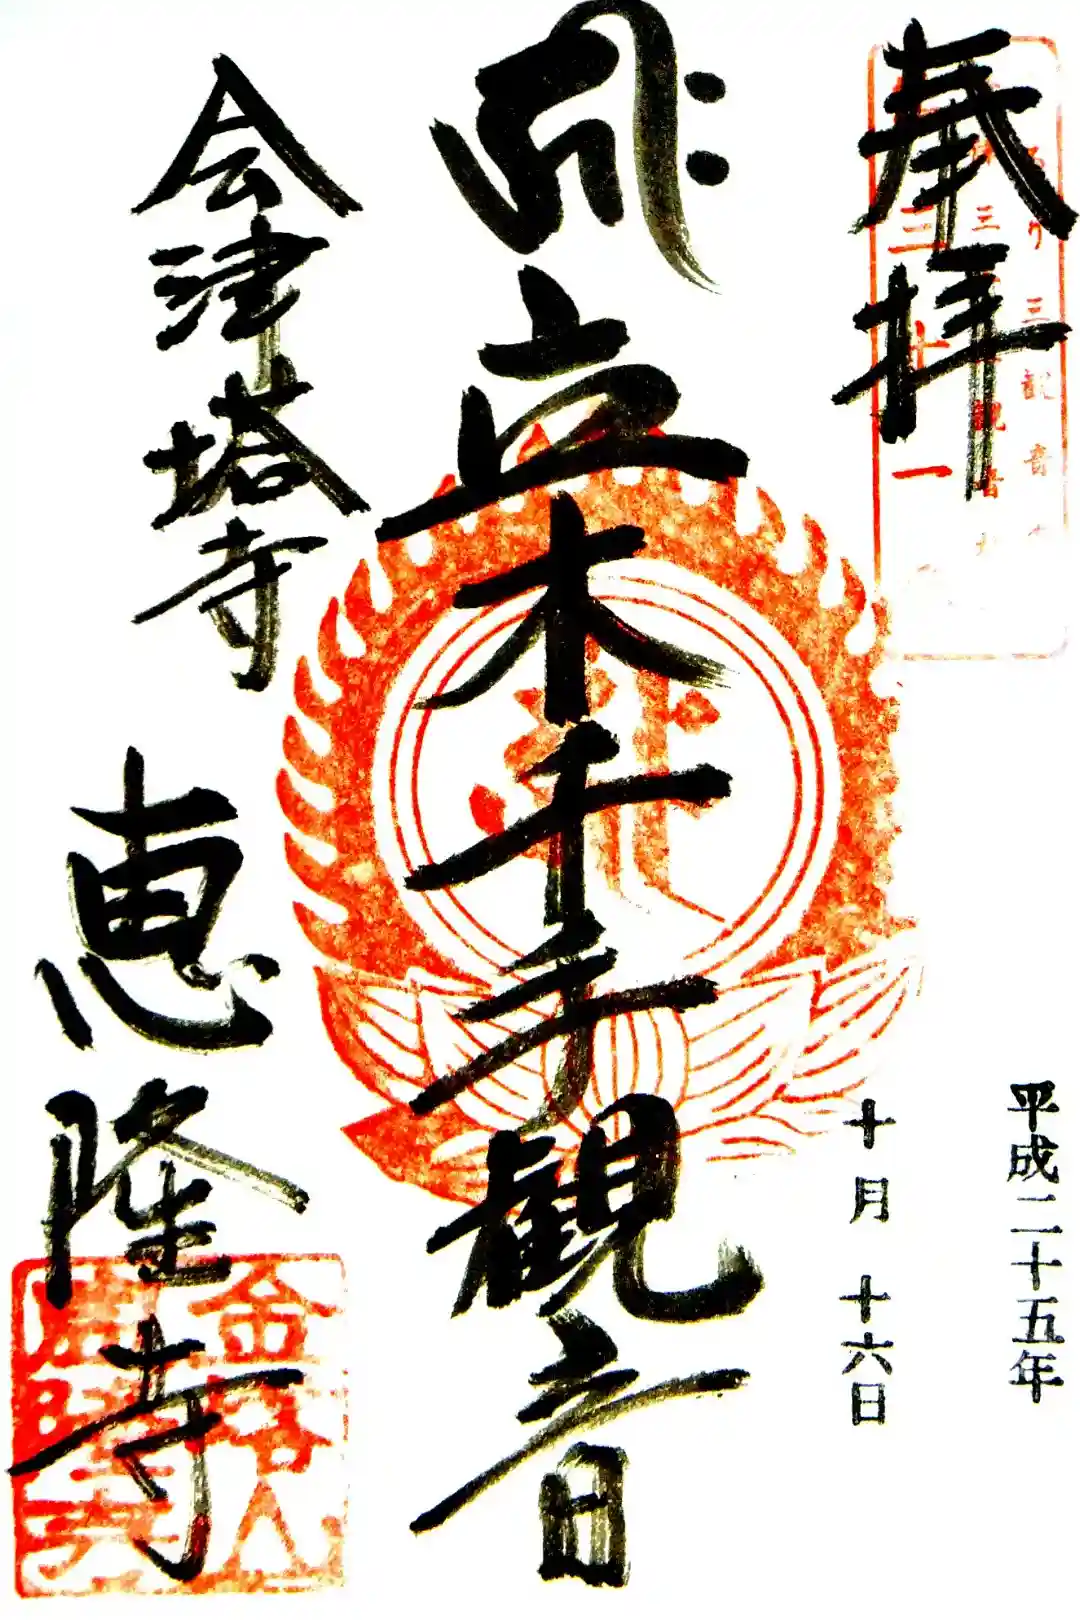 奉拝
平成二十五年
十月十六日
立木千手観音
会津塔寺
恵隆寺
三十一